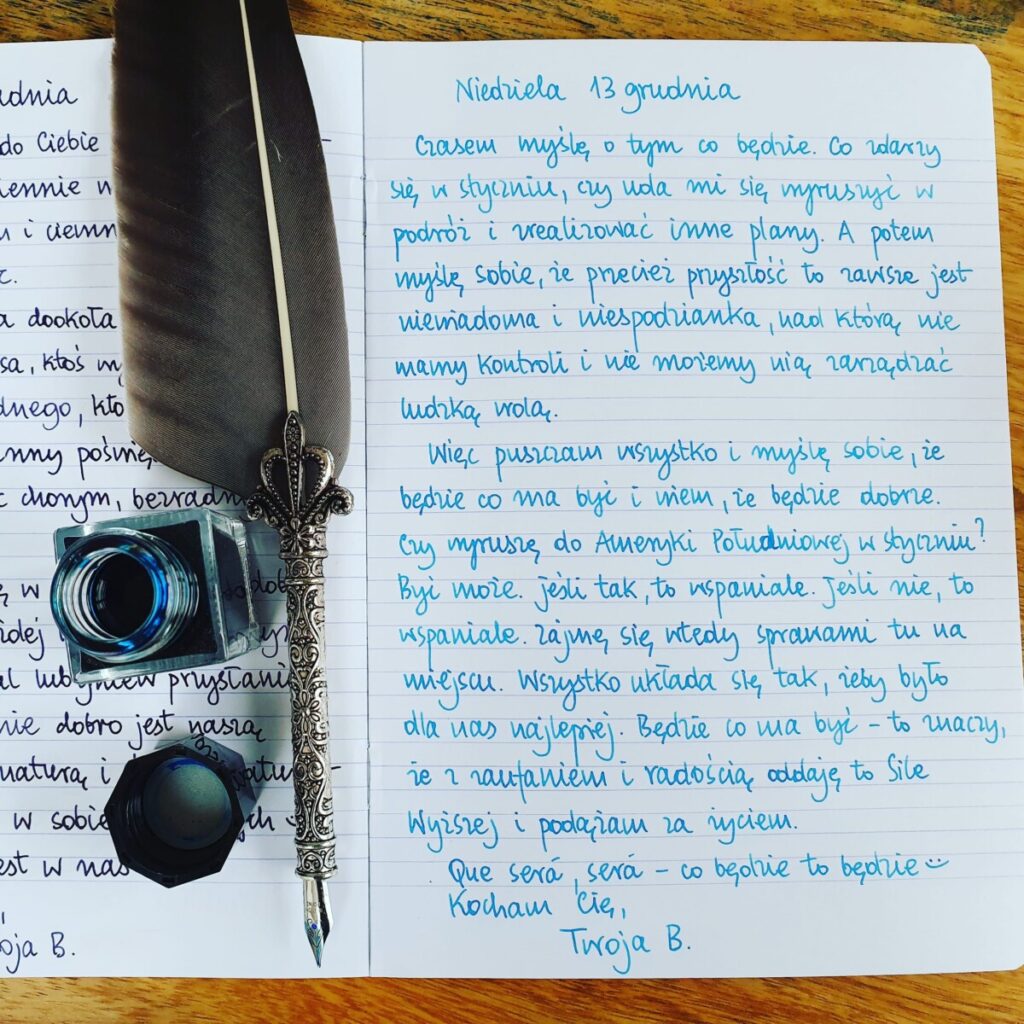 adnia
do Ciebie
iennie w
i ciemn
c.
a dookoła
sa, ktoś my
dnego, kto
inny poświę
c chorym, bezradn
ę w
idej
al lub
przysłani
nie dobro jest naszą
naturą i
w sobie
est w nas
oja B.
Niedziela 13 grudnia
Czasem myślę o tym co będzie. Co zdarzy
się w styczniu, czy uda mi się wyruszyć w
podróż i zrealizować inne plany. A potem
myślę sobie, że przecież przyszłość to zawsze jest
niewiadoma i niespodzianka, nad którą nie
mamy kontroli i nie możemy nią zarządzać
ludzką wolą.
Więc puszczam wszystko i myślę sobie, że
będzie co ma być i wiem, że będzie dobrze.
Czy wyruszę do Ameryki Południowej w styczniu?
Być może. Jeśli tak, to wspaniale. Jeśli nie, to
wspaniale. Zajmę się wtedy sprawami tu na
miejscu. Wszystko układa się tak, żeby było
dla nas najlepiej. Będzie co ma być - to znaczy,
że z zaufaniem i radością oddaję to Sile
Wyższej i podążam za życiem.
Que será, será - co będzie to będzie
Kocham Cię,
Twoja B.